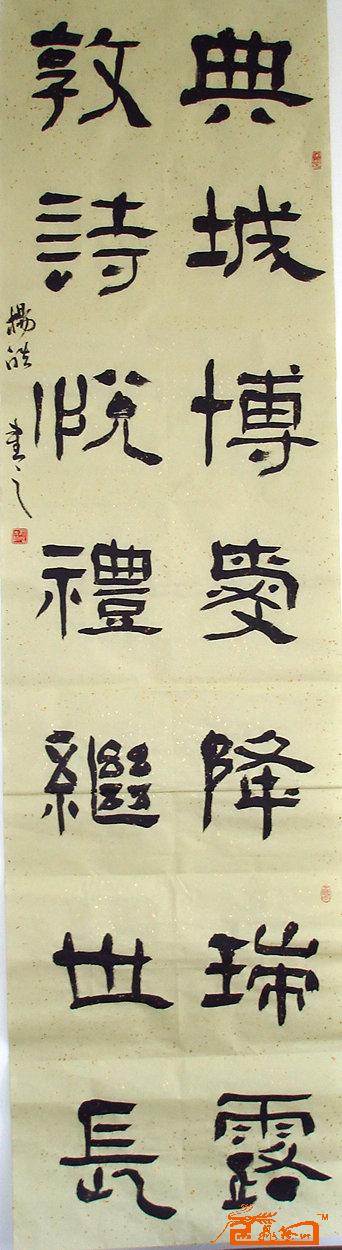 典城博愛降瑞露
敦詩悅禮繼世長
楊皓書之